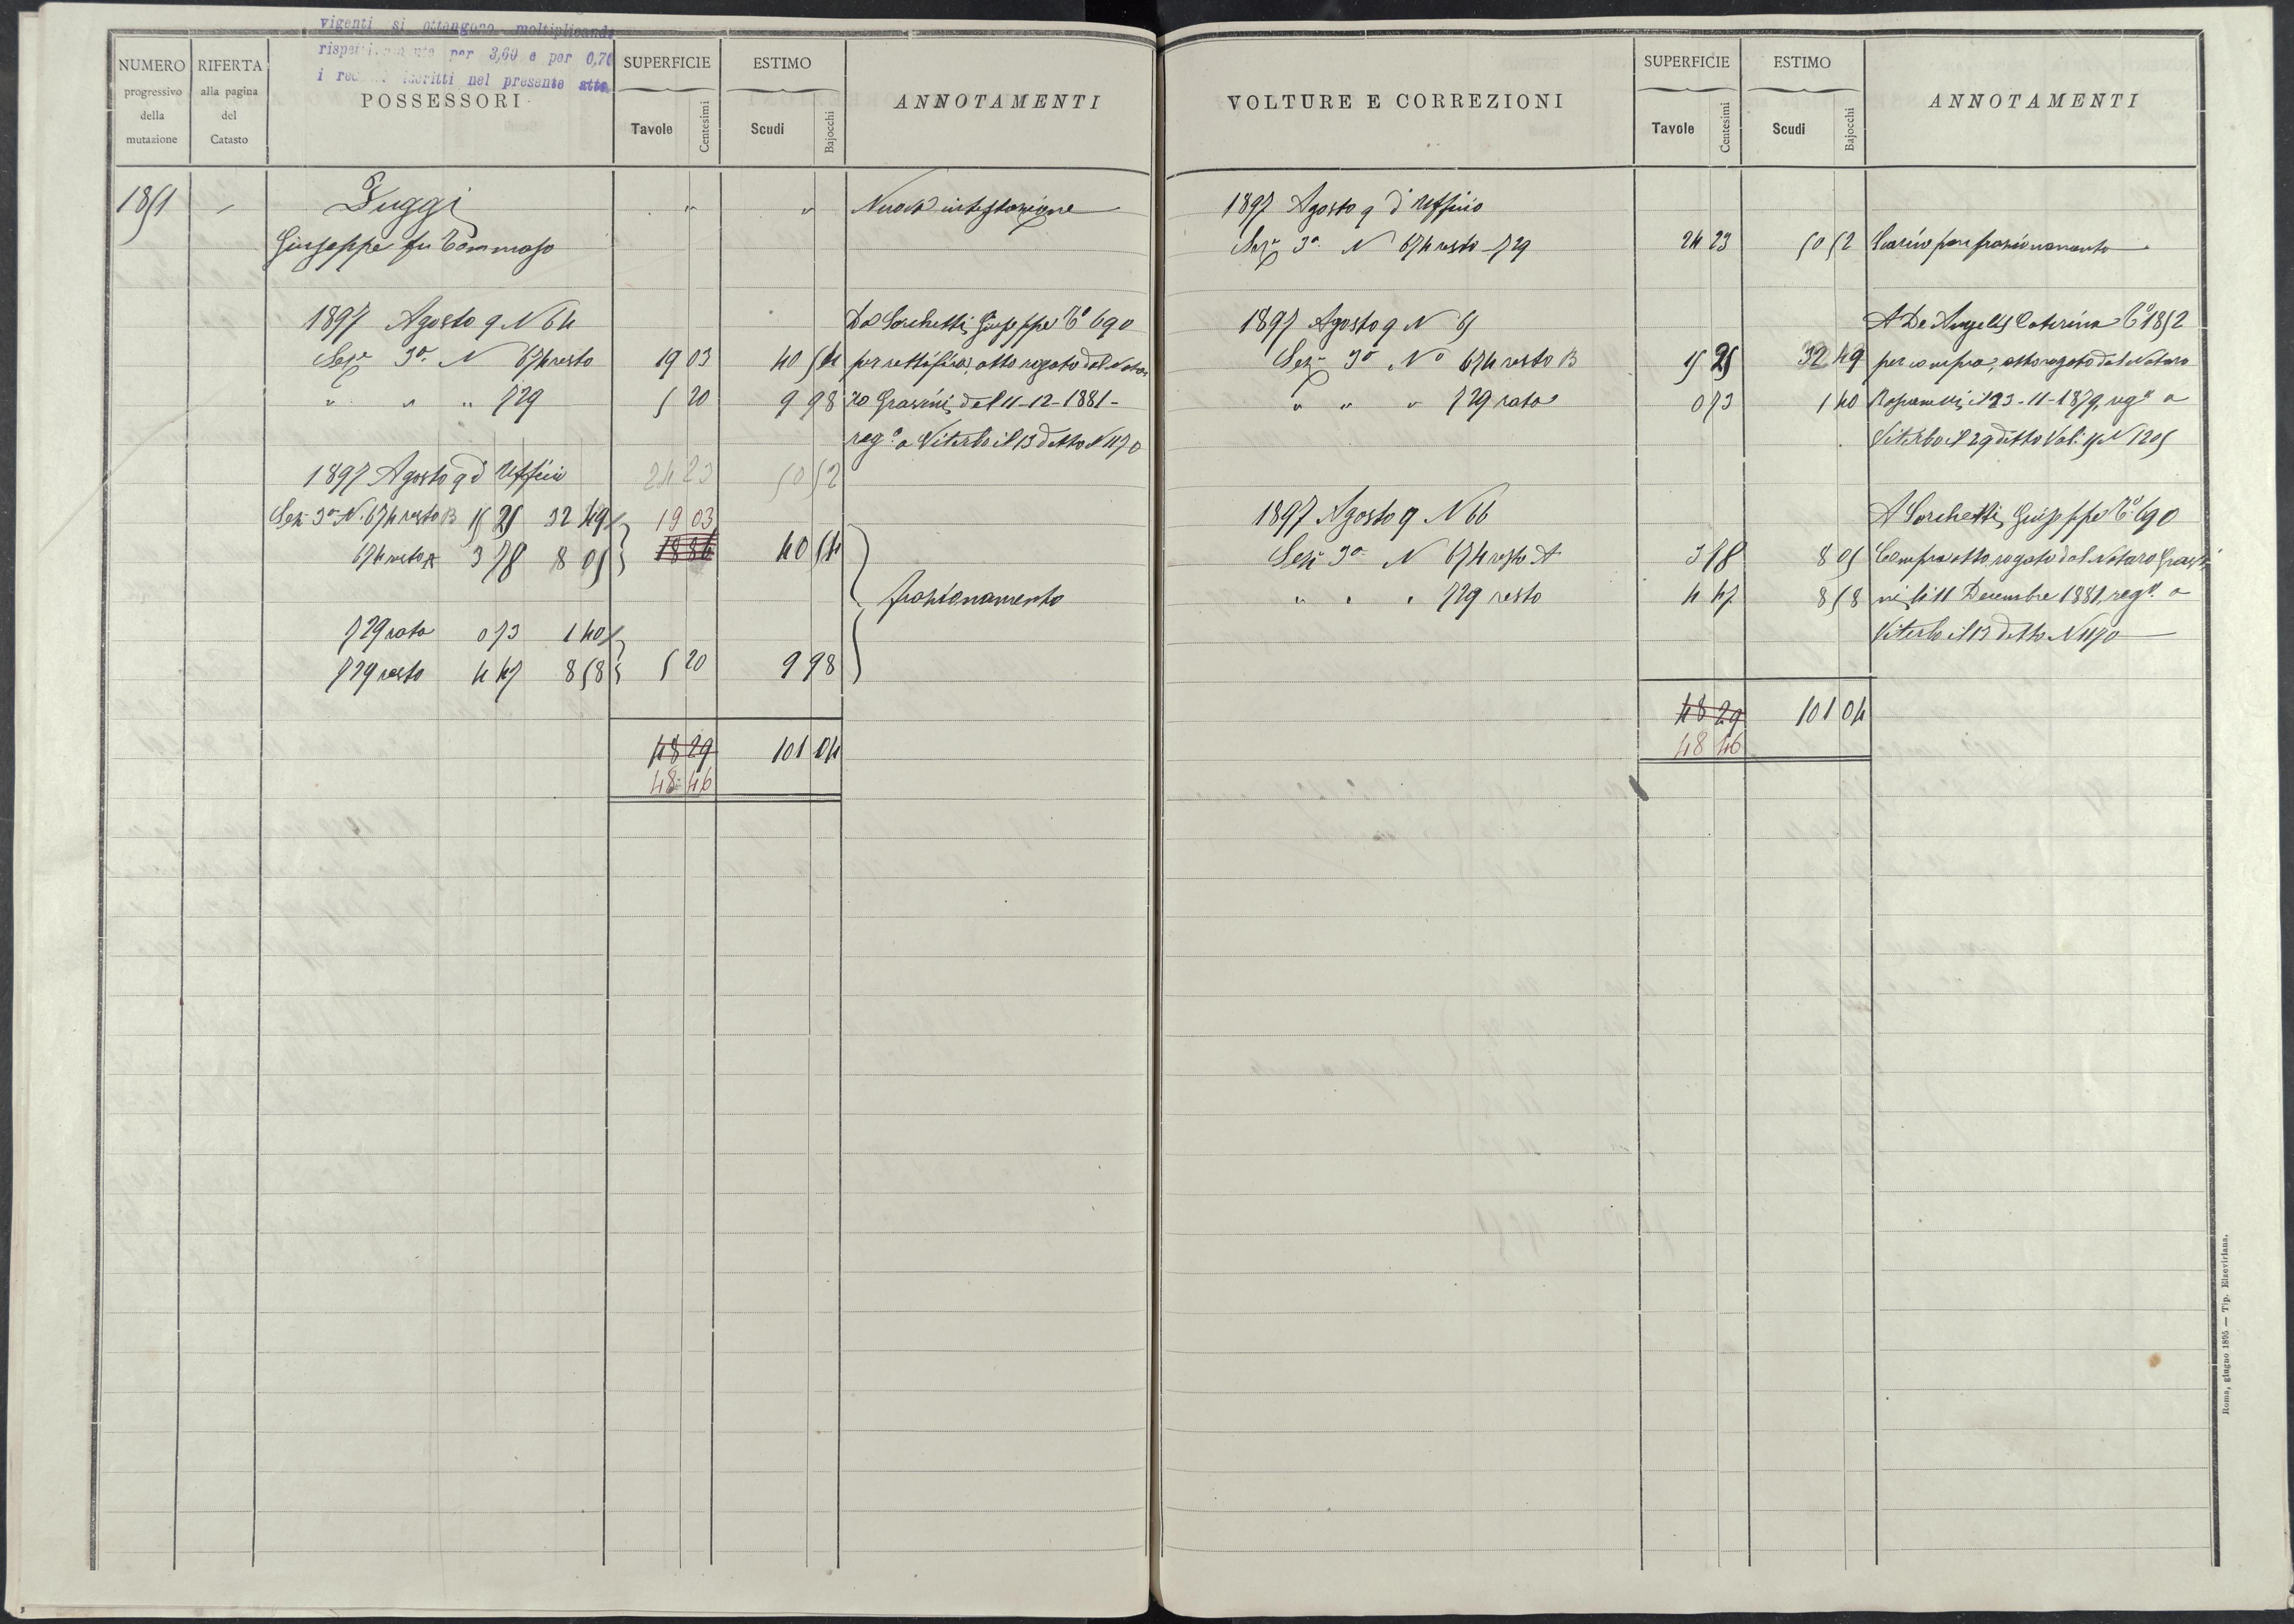 vigenti si ottengono moltiplicando
rispettivamente per 3,60 e per 0,70
i redditi iscritti nel presente atto.
NUMERO progressivo della mutazione
RIFERTA alla pagina del Catasto
POSSESSORI
SUPERFICIE Tavole Centesimi
ESTIMO Scudi Bajocchi
ANNOTAMENTI
1851 — " " Nuova intestazione
Giuseppe fu Tommaso
1897 Agosto 9 N 64 Da Sorchetti Giuseppe T° 690
Sez 3a N 674 resto 19 03 40 54 per rettifica, atto rogato dal Nota
" " " 729 5 20 9 98 ro Grassini, del 11-12-1881-
reg° a Viterbo il 13 detto N 1170
1897 Agosto 9 d'Ufficio 24 23 50 52
Sez 3a N. 674 resto B 15 25 32 49 19 03
674 resto A 3 78 8 05 18 86 40 54
frazionamento
729 rata 0 73 1 40
729 resto 4 47 8 58 5 20 9 98
48 29 101 04
48 46
VOLTURE E CORREZIONI
SUPERFICIE Tavole Centesimi
ESTIMO Scudi Bajocchi
ANNOTAMENTI
1897 Agosto 9 d'Ufficio
Sez 3a N 674 resto - 729 24 23 50 52 Scarico per frazionamento
1897 Agosto 9 N 65 A De Angelis Caterina T° 1852
Sez 3a N° 674 resto B 15 25 32 49 per compra, atto rogato dal Notaro
" " " 729 rata 0 73 1 40 il 23-11-1879, reg° a
Viterbo il 29 detto Vol. N 1205
1897 Agosto 9 N 66 A Sorchetti Giuseppe T° 690
Sez 3a N 674 resto A 3 78 8 05 Compra atto rogato dal Notaro Grassi
" " " 729 resto 4 47 8 58 ni, li 11 Decembre 1881, reg° a
Viterbo il 13 detto N 1170
48 29 101 04
48 46
Roma, giugno 1895 — Tip. Elzeviriana.